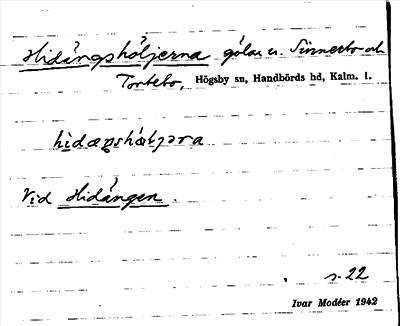 Hidängshöljerna gölar u. Sinnerbo och
Tontebo, Högsby sn, Handbörds hd, Kalm. l.
Vid Hidängen.
s. 22
Ivar Modéer 1942